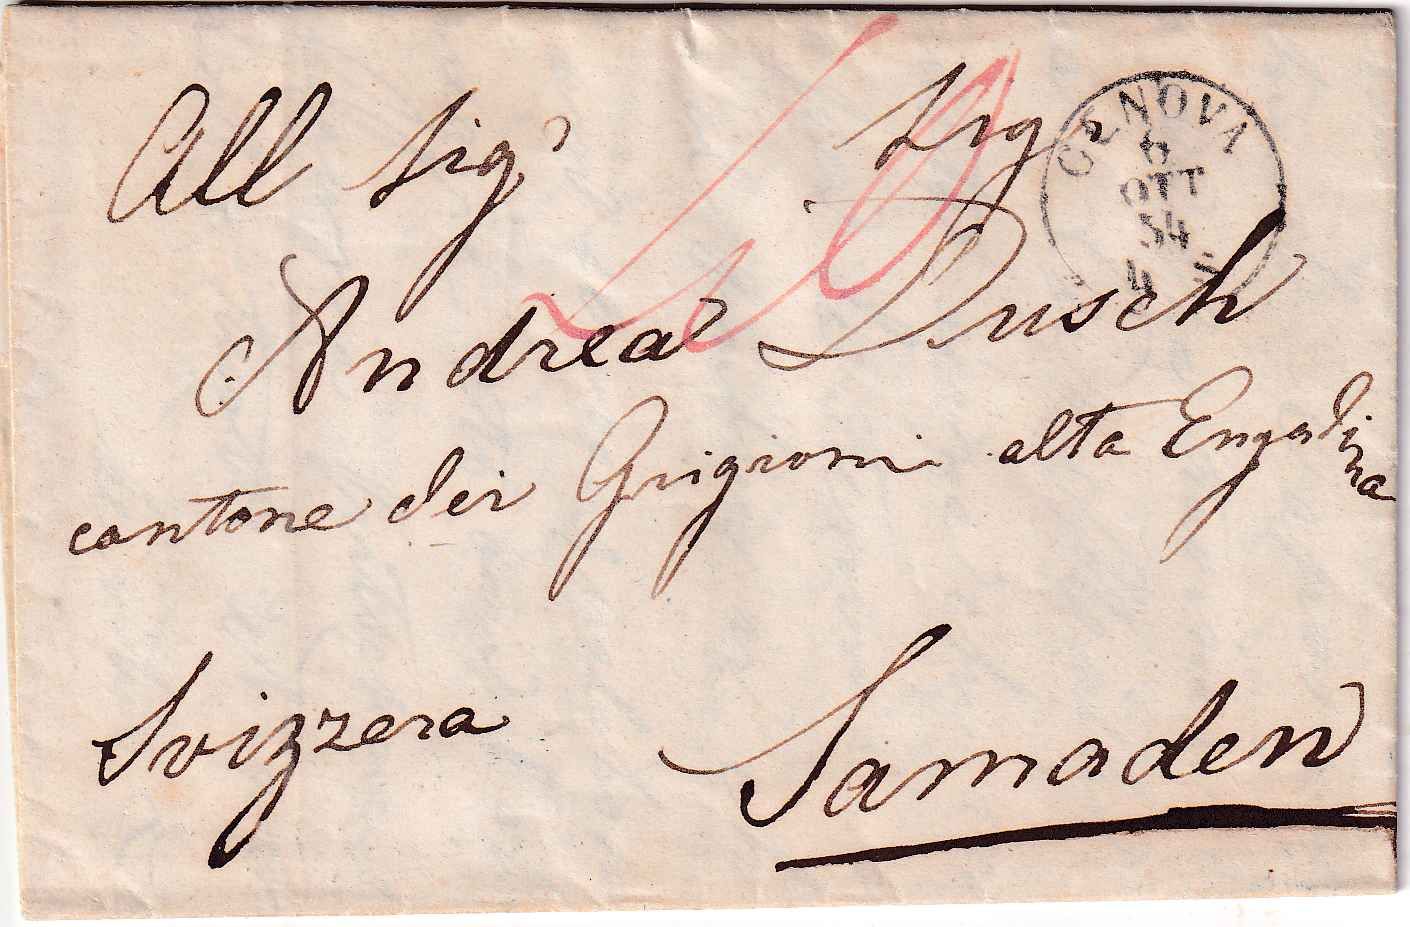 All Sig.r Sig.r
Andrea Dusch
cantone dei Grigioni alta Engadina
Svizzera Samaden
GENOVA
6
OTT
54
4 S